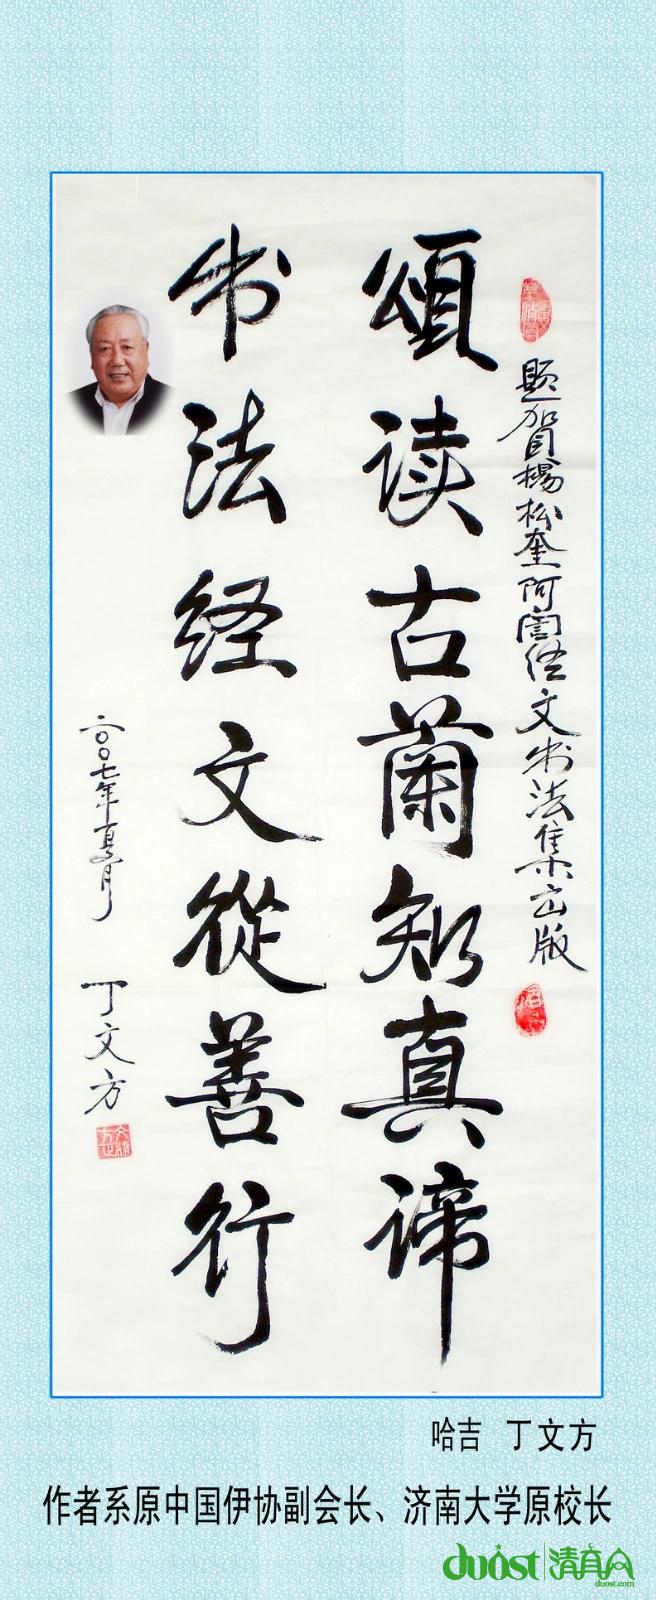 题贺楊松奎阿訇经文书法集出版
頌读古蘭知真谛
书法经文從善行
二〇〇七年夏月 丁文方
哈吉 丁文方
作者系原中国伊协副会长、济南大学原校长
duost 清真
duost.com